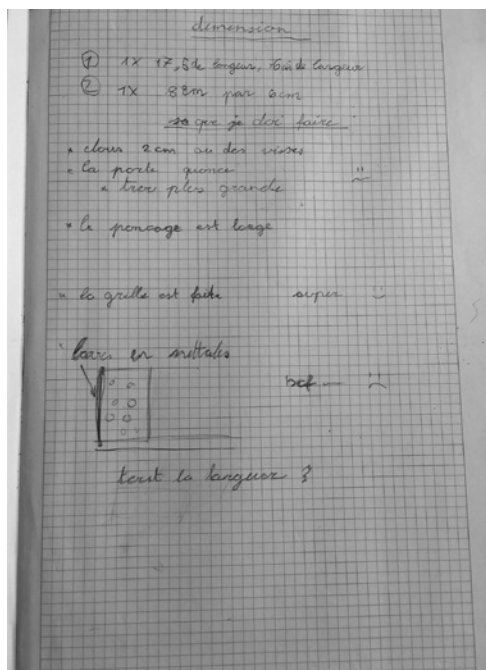 dimension
① 1x 17,5 de longeur, 6 cm de largeur
② 1x 8 cm par 6 cm
se que je doi faire
* clous 2 cm ou des visses
* la porte
* trou plus grande
* le poncage est longe
* la grille est faite super :)
bars en mettales
bof :(
tout la langueur ?